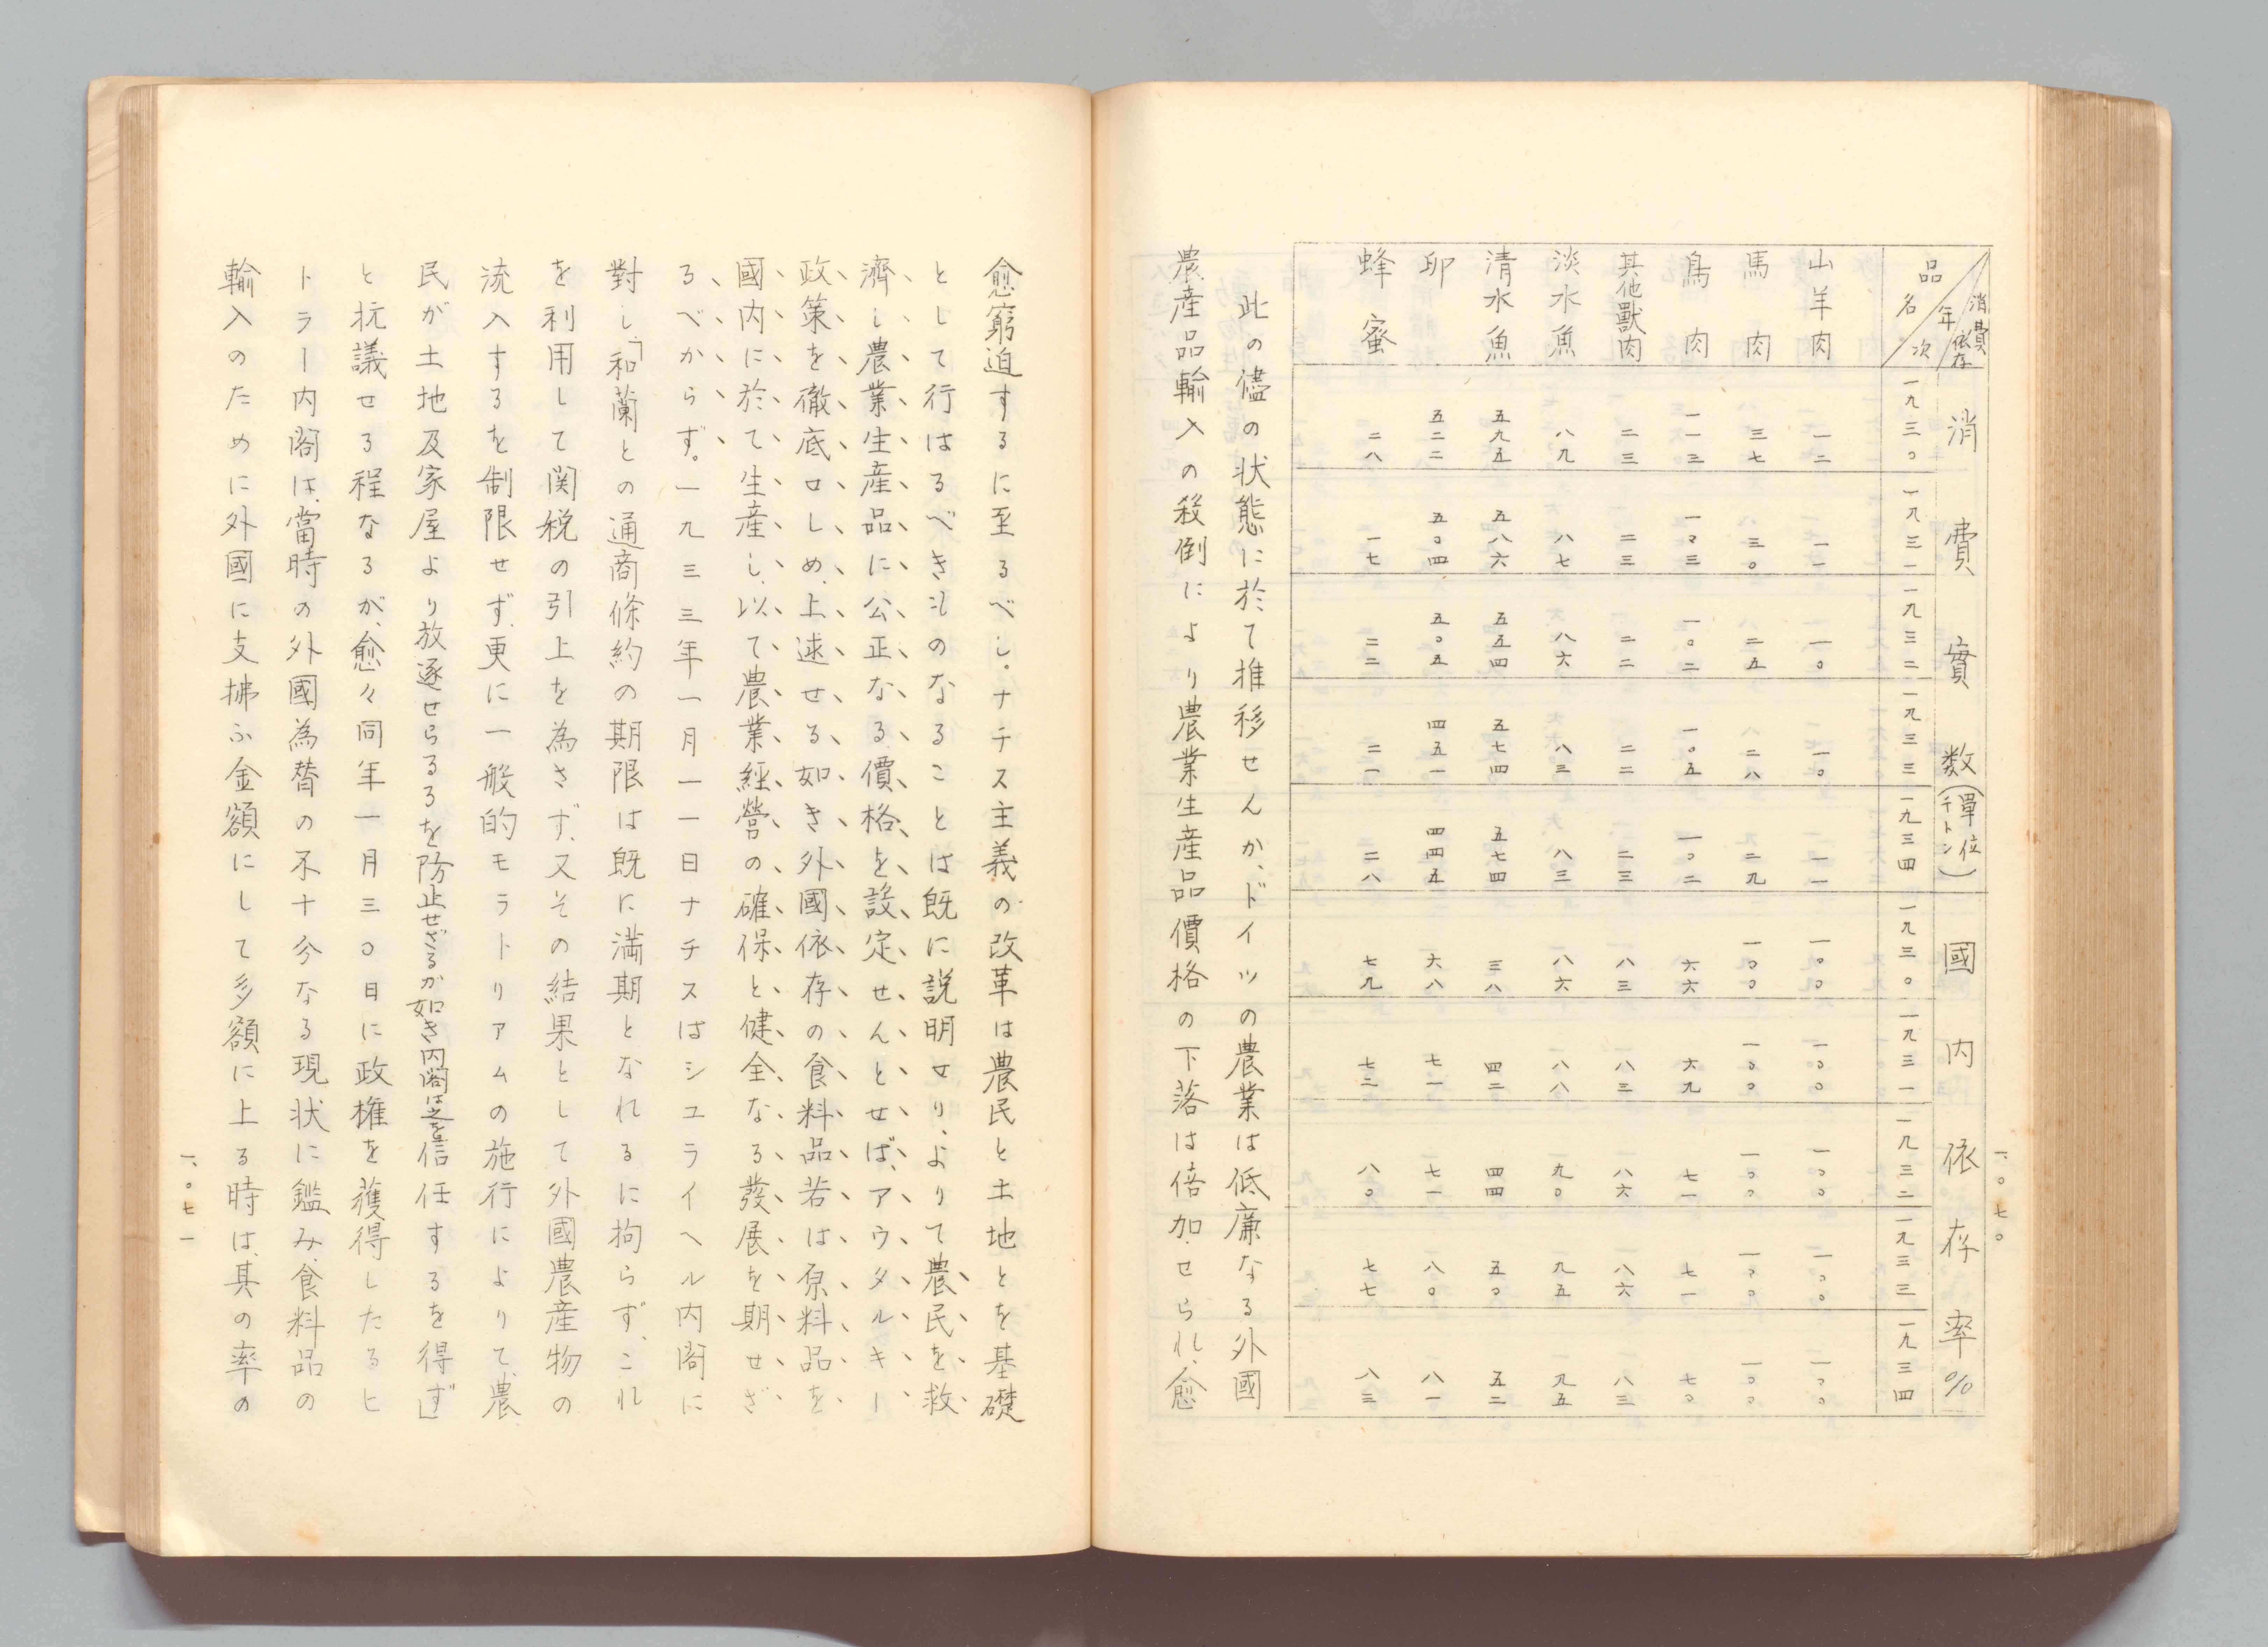 一、〇七〇
消費依存 消費實数(單位千トン) 國内依存率%
品名 年次 一九三〇 一九三一 一九三二 一九三三 一九三四 一九三〇 一九三一 一九三二 一九三三 一九三四
山羊肉 一二 一一 一〇 一〇 一一 一〇〇 一〇〇 一〇〇 一〇〇 一〇〇
馬肉 三七 三〇 二五 二八 二九 一〇〇 一〇〇 一〇〇 一〇〇 一〇〇
鳥肉 一一三 一〇三 一〇二 一〇五 一〇二 六六 六九 七一 七一 七〇
其他獸肉 二三 二三 二二 二二 二三 八三 八三 八六 八六 八三
淡水魚 八九 八七 八六 八三 八三 八六 八八 九〇 九五 九五
清水魚 五九五 五八六 五五四 五七四 五七四 三八 四二 四四 五〇 五二
卵 五二二 五〇四 五〇五 四五一 四四五 六八 七一 七一 八〇 八一
蜂蜜 二八 一七 二二 二一 二八 七九 七二 八〇 七七 八三
此の儘の状態に於て推移せんか、ドイツの農業は低廉なる外國
農産品輸入の殺倒により農業生産品價格の下落は倍加せられ、愈
愈窮迫するに至るべし。ナチス主義の改革は農民と土地とを基礎
として行はるべきものなることは既に説明せり、よりて農民を救
濟し農業生産品に公正なる價格を設定せんとせば、アウタルキー
政策を徹底せしめ、上述せる如き外國依存の食料品若は原料品を
國内に於て生産し、以て農業經營の確保と健全なる發展を期せざ
るべからず。一九三三年一月一一日ナチスはシユライヘル内閣に
對し、「和蘭との通商條約の期限は既に満期となれるに拘らず、これ
を利用して関税の引上を為さず、又その結果として外國農産物の
流入するを制限せず、更に一般的モラトリアムの施行によりて、農
民が土地及家屋より放逐せらるるを防止せざるが如き内閣は之を信任するを得ず」
と抗議せる程なるが、愈々同年一月三〇日に政権を獲得したるヒ
トラー内閣は、當時の外國為替の不十分なる現状に鑑み、食料品の
輸入のために外國に支拂ふ金額にして多額に上る時は、其の率の
一、〇七一